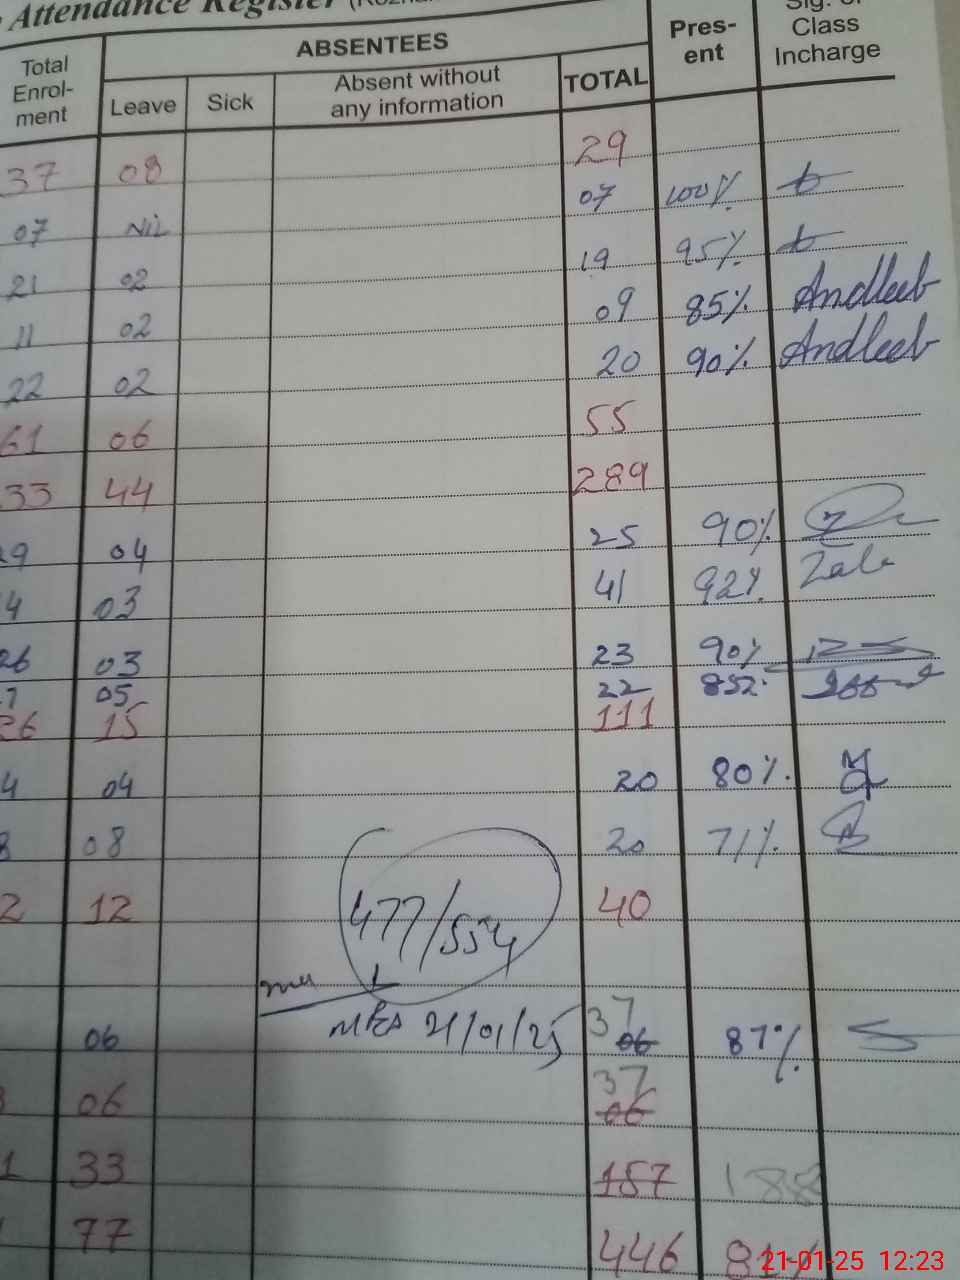 Attendance Register
Total Enrol- ment ABSENTEES Pres- ent Class Incharge
Leave Sick Absent without any information TOTAL
37 08 29
07 Nil 07 100%
21 02 19 95%
11 02 09 85% Andleeb
22 02 20 90% Andleeb
61 06 55
33 44 289
29 04 25 90%
4 03 41 92%
26 03 23 90%
7 05 22 85%
26 15 111
4 04 20 80%
8 08 20 71%
2 12 40
477/554
21/01/25
06 37 06 87%
06 37 06
1 33 157 188
77 446
21-01-25 12:23